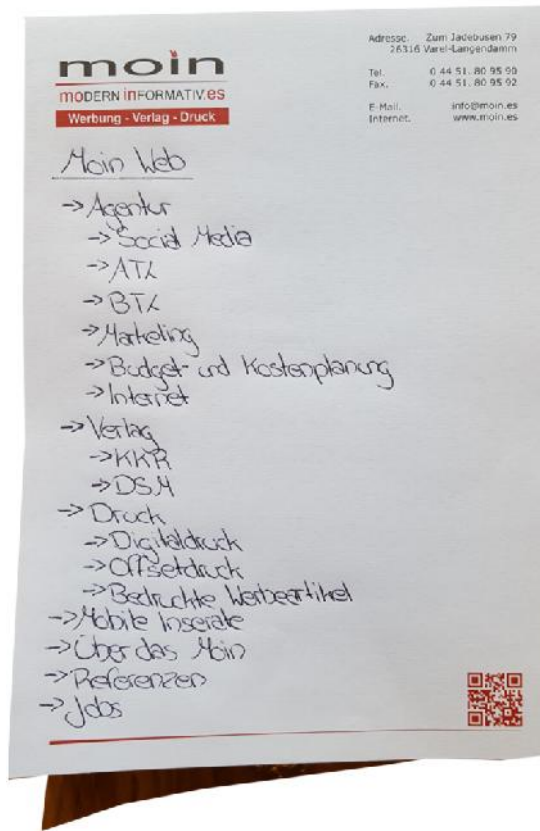 moin
MODERN INFORMATIV.ES
Werbung - Verlag - Druck
Adresse. Zum Jadebusen 79
26316 Varel-Langendamm
Tel. 0 44 51. 80 95 90
Fax. 0 44 51. 80 95 92
E-Mail. info@moin.es
Internet. www.moin.es
Moin Web
-> Agentur
-> Social Media
-> ATL
-> BTL
-> Marketing
-> Budget- und Kostenplanung
-> Internet
-> Verlag
-> KKR
-> DSM
-> Druck
-> Digitaldruck
-> Offsetdruck
-> Bedruckte Werbeartikel
-> Mobile Inserate
-> Über das Moin
-> Referenzen
-> Jobs